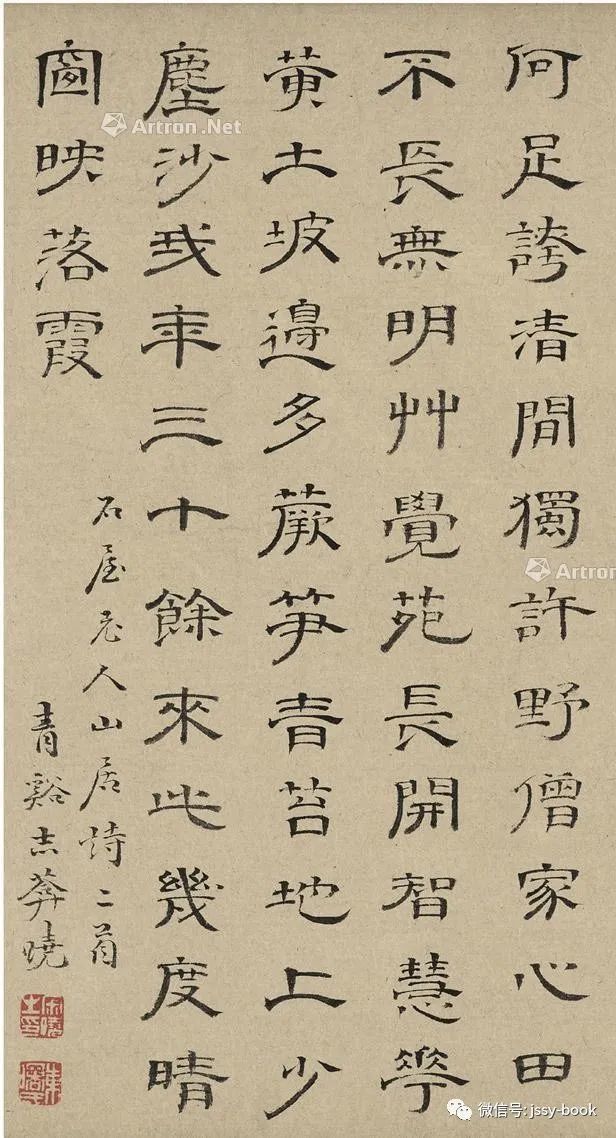 何足誇清閒獨許野僧家心田
不長無明艸覺苑長開智慧華
黄土坡邊多蕨笋青苔地上少
塵沙我年三十餘來此幾度晴
窗映落霞
石屋老人山居詩二首
青谿
Artron.Net
Artron
微信号: jssy-book